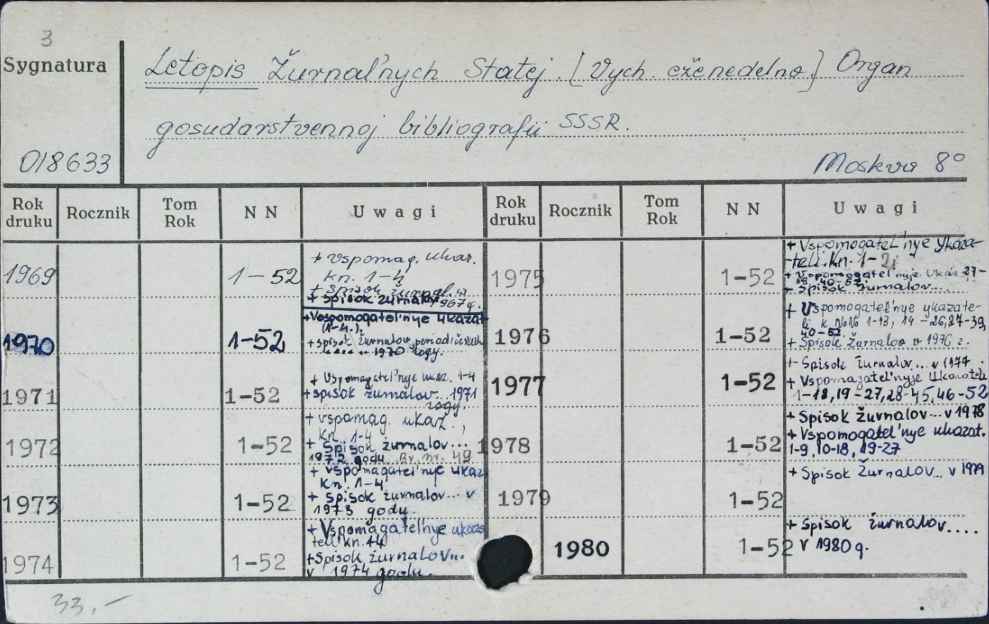 3
Sygnatura
Letopis Žurnal'nych Statej. [Vych. eženedelno] Organ
gosudarstvennoj bibliografii SSSR.
018633
Moskva 8°
Rok druku Rocznik Tom Rok N N Uwagi Rok druku Rocznik Tom Rok N N Uwagi
1969 1-52
+ vspomag. ukaz.
kn. 1-4
+ Spisok žurnalov
1967 g.
1970 1-52
+ Vspomogatel'nye ukazat.
(1-4.)
+ spisok žurnalov, period
1970 gogy.
1971 1-52
+ Vspomagatel'nye ukaz. 1-4
+ spisok žurnalov... 1971
gogy.
1972 1-52
+ vspomag. ukaz.,
kn. 1-4
+ Spisok žurnalov...
1972 godu. Br. nr. 49.
1973 1-52
+ Vspomagatel'nye ukaz.
kn. 1-4
+ spisok žurnalov... v
1973 godu.
1974 1-52
+ Vspomagatel'nye ukaza
teli kn.
+Spisok žurnalov...
v 1974 godu.
1975 1-52
+ Vspomogatel'nye ykaza-
teli. Kn. 1-2
+ Vspomogatel'nyje ukaz. 27-
39, 40-52.
+ Spisok žurnalov...
1976 1-52
+ Vspomogatel'nye ykazate-
li k NoNo 1-13, 14-26, 27-39,
40-52.
+ Spisok žurnalov v 1976 g.
1977 1-52
+ Spisok žurnalov... v 1977
+ Vspomagatel'nyje ukazateli
1-18, 19-27, 28-45, 46-52
1978 1-52
+ Spisok žurnalov... v 1978
+ Vspomogatel'nye ukazat.
1-9, 10-18, 19-27
1979 1-52
+ Spisok žurnalov... v 1979
1980 1-52
+ Spisok žurnalov....
v 1980 g.
33,-